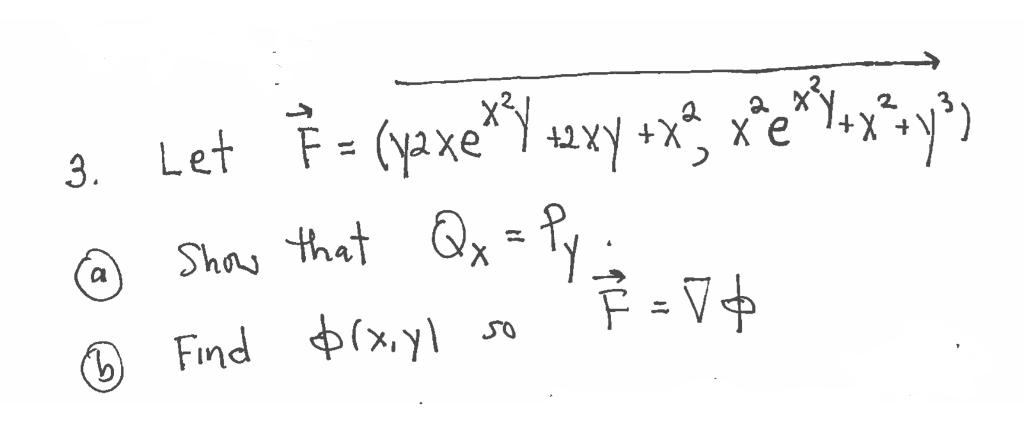 3. Let F⃗ = (y2xe^{x²y} +2xy +x², x²e^{x²y} +x² +y³)
ⓐ Show that Qₓ = P_y .
ⓑ Find ϕ(x,y) so F⃗ = ∇ϕ